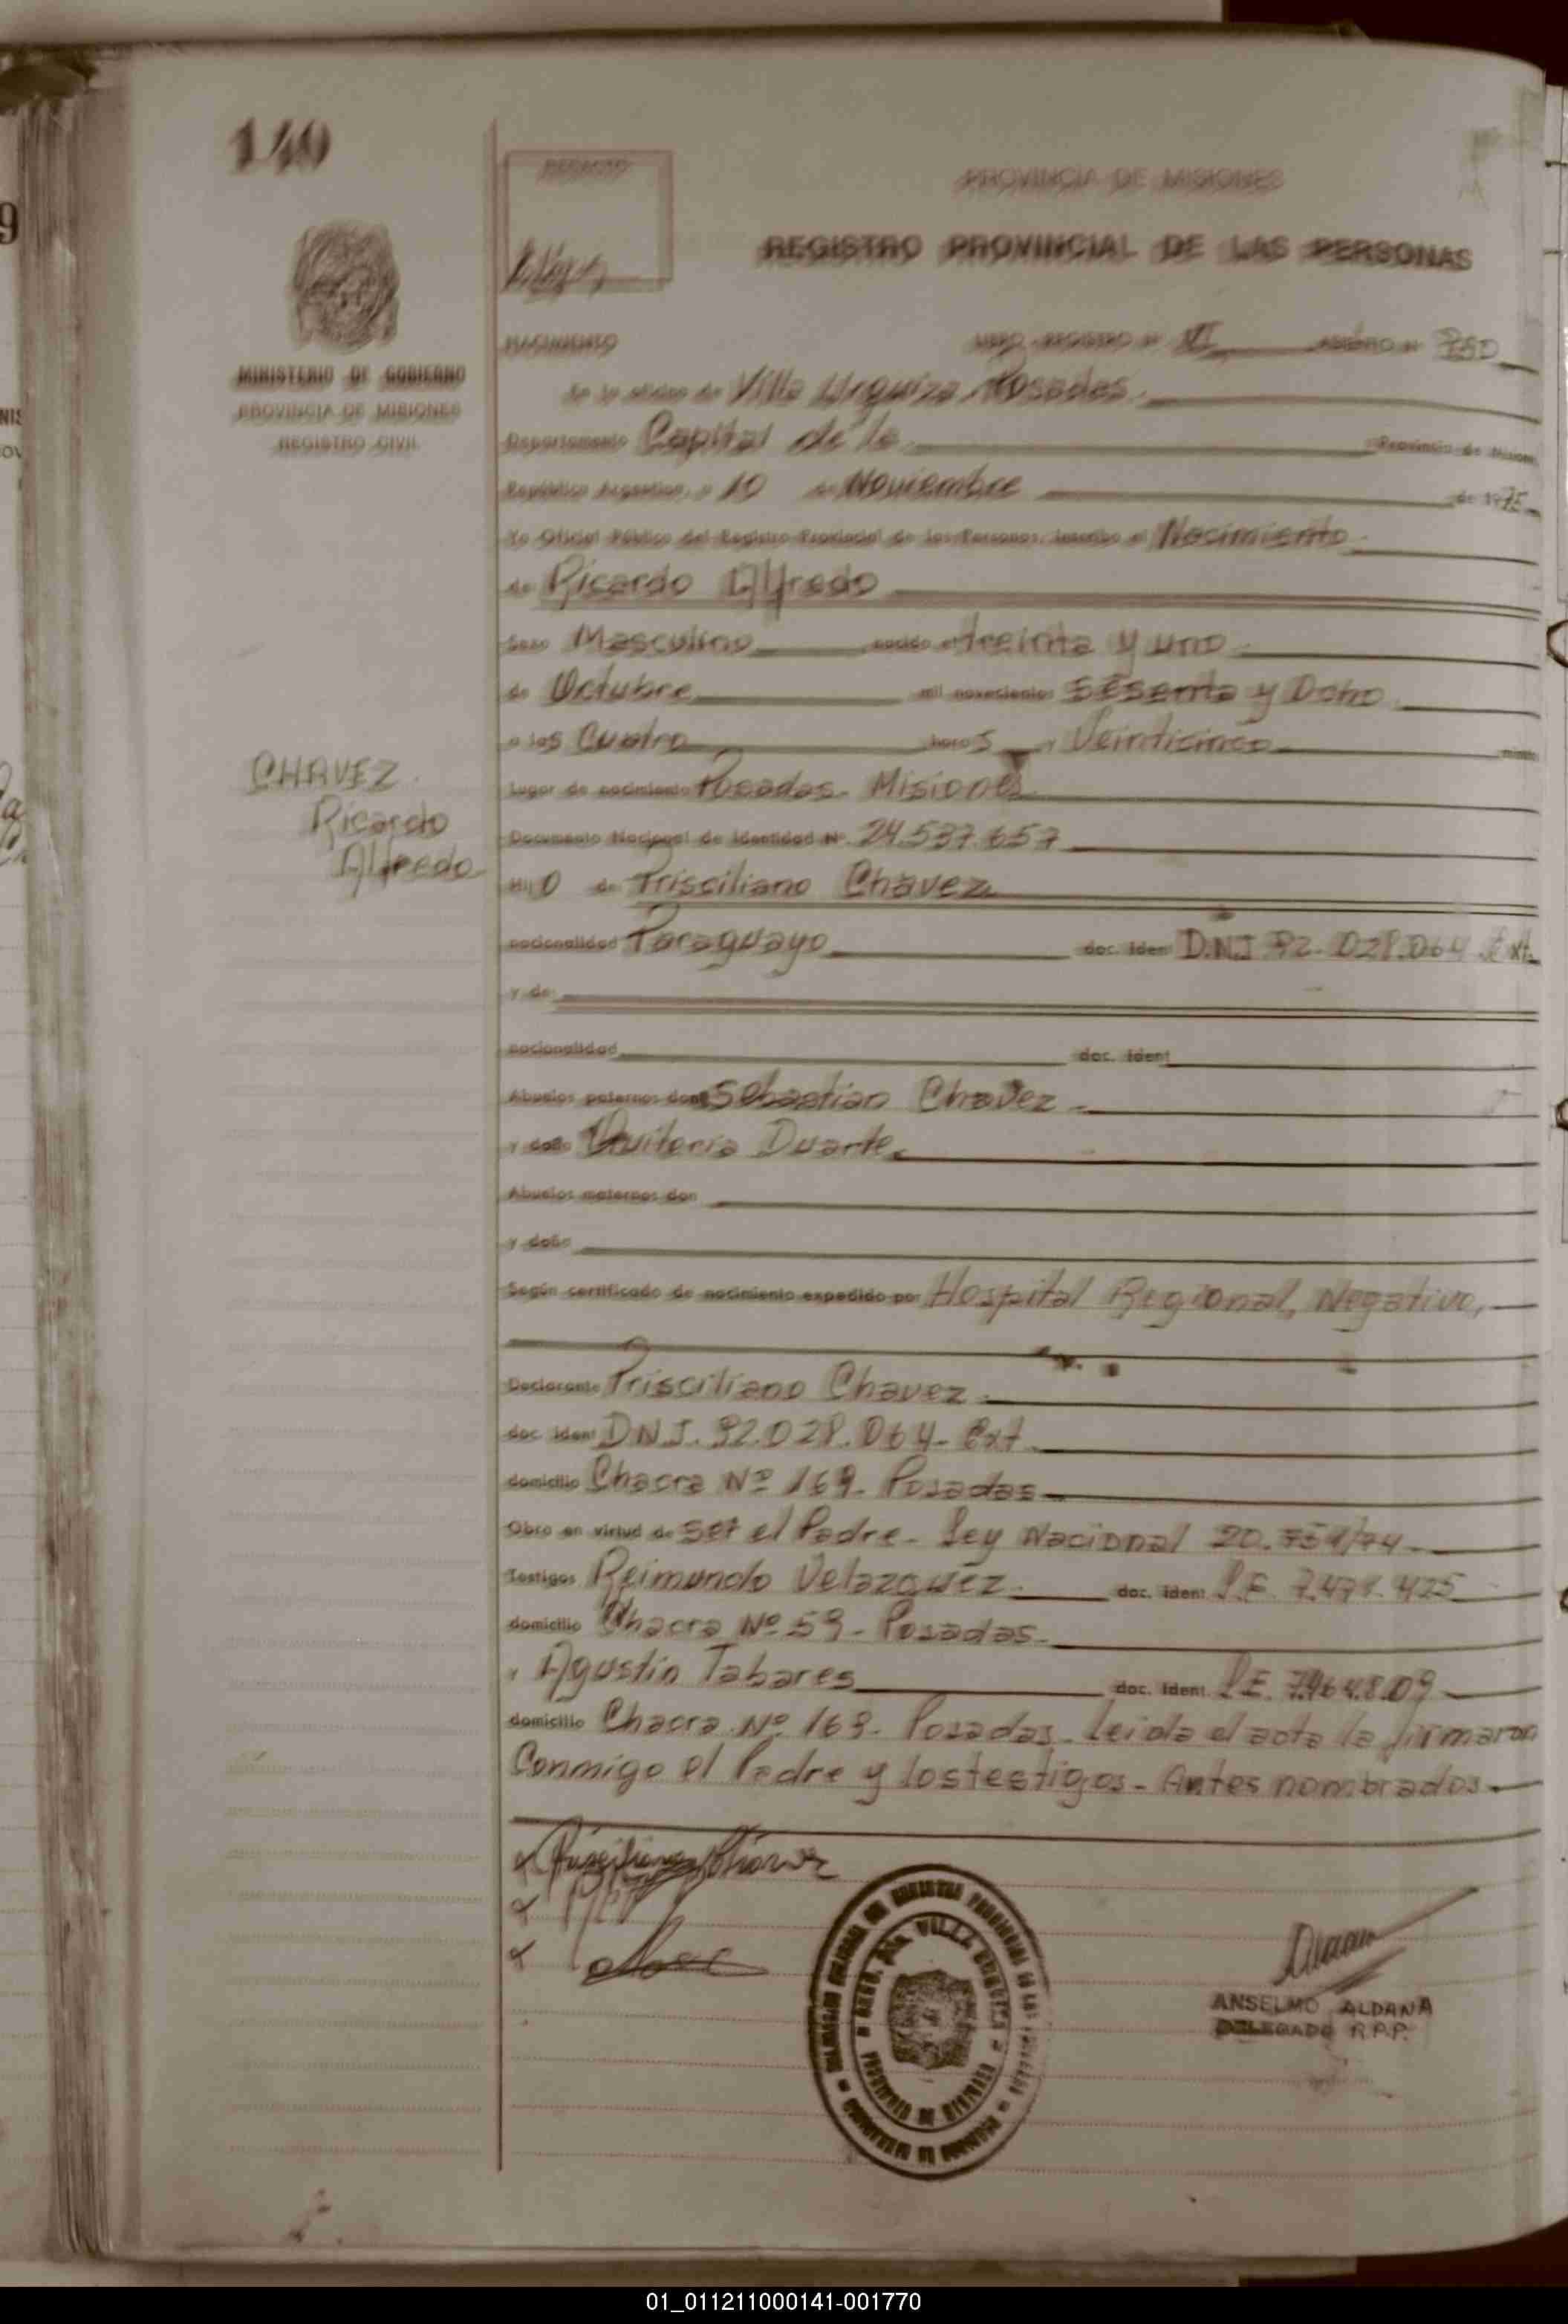 140
PROVINCIA DE MISIONES
REGISTRO PROVINCIAL DE LAS PERSONAS
MINISTERIO DE GOBIERNO
PROVINCIA DE MISIONES
REGISTRO CIVIL
NACIMIENTO LIBRO REGISTRO Nº VI ASIENTO Nº 750
En la oficina de Villa Urquiza Posadas.
Departamento Capital de la Provincia de Misiones
República Argentina, a 10 de Noviembre de 1975
Yo Oficial Público del Registro Provincial de las Personas, inscribo el Nacimiento
de Ricardo Alfredo
Sexo Masculino nacido el treinta y uno
de Octubre mil novecientos Sesenta y Ocho
a las Cuatro horas y Veinticinco minutos
Lugar de nacimiento Posadas - Misiones
CHAVEZ
Ricardo
Alfredo
Documento Nacional de Identidad Nº 24.537.657
Hijo de Prisciliano Chavez
nacionalidad Paraguayo doc. Ident D.N.I 92.028.064 Ext.
y de
nacionalidad doc. Ident
Abuelos paternos don Sebastian Chavez
y doña Quiteria Duarte
Abuelos maternos don
y doña
Según certificado de nacimiento expedido por Hospital Regional, Negativo,
Declarante Prisciliano Chavez
doc. Ident D N I. 92.028.064 - Ext.
domicilio Chacra Nº 169 - Posadas
Obra en virtud de ser el Padre - Ley Nacional 20.751/74
Testigos Reimundo Velazquez doc. Ident L.E. 7.471.425
domicilio Chacra Nº 59 - Posadas
y Agustin Tabares doc. Ident. L.E. 7.964.809
domicilio Chacra Nº 169 - Posadas - leida el acta la firmaron
Conmigo el Padre y los testigos - Antes nombrados
ANSELMO ALDANA
DELEGADO R.P.P.
01_011211000141-001770